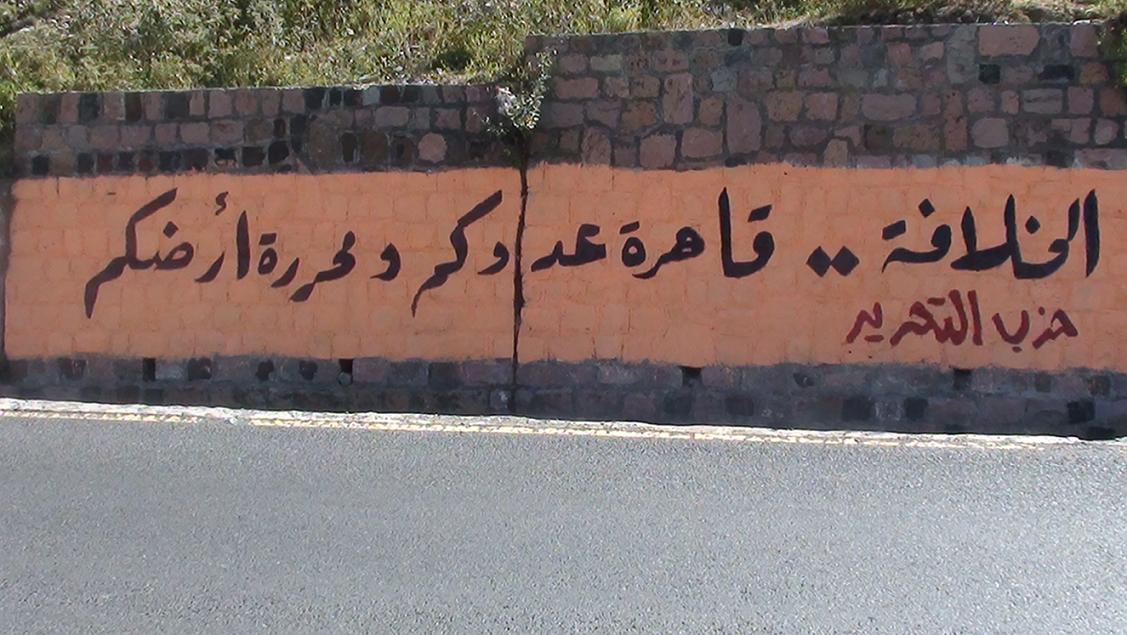 الخلافة .. قاهرة عدوكم و محررة أرضكم
حزب التحرير